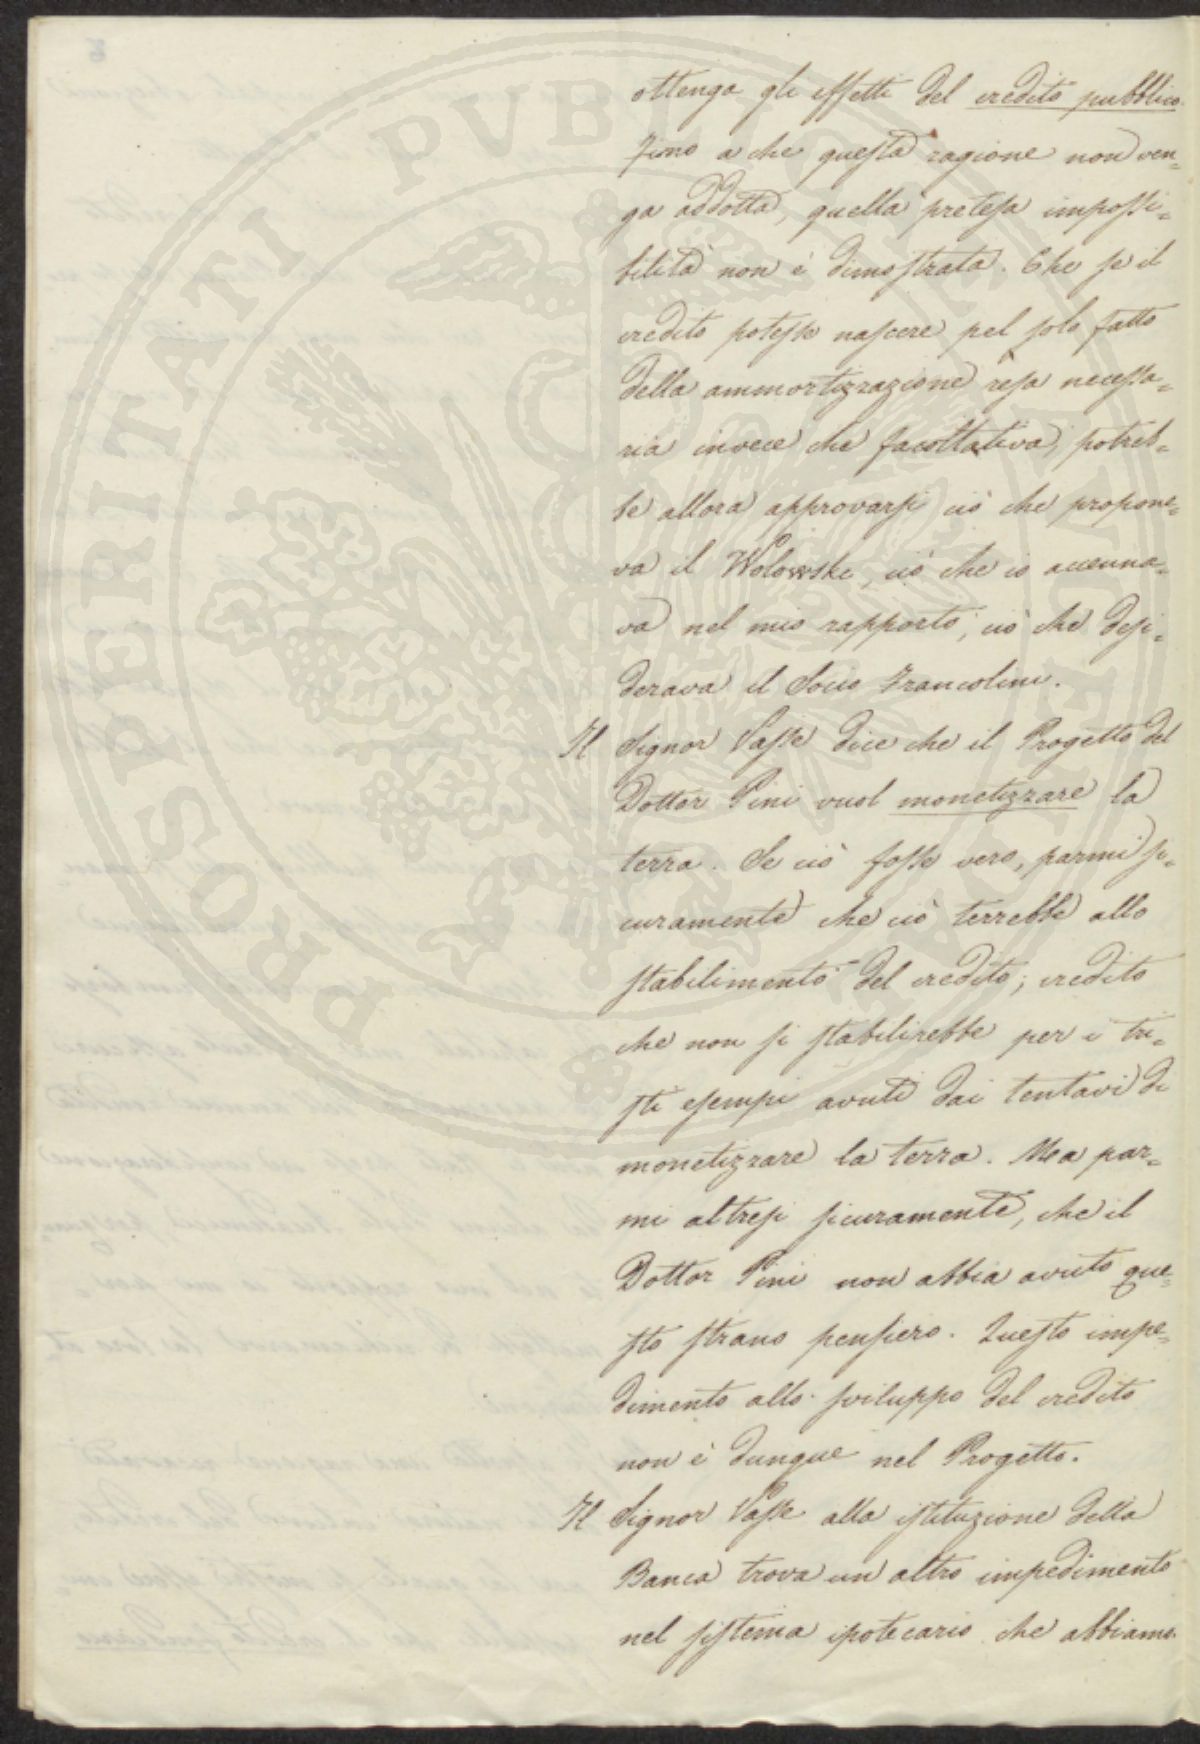 ottenga gli effetti del credito pubblico.
Fino a che questa ragione non ven=
ga addotta, quella pretesa impossi=
bilità non è dimostrata. Che se il
credito potesse nascere pel solo fatto
della ammortizzazione resa necessa=
ria invece che facoltativa, potreb=
be allora approvarsi ciò che propone=
va il Wolowski, ciò che io accenna=
va nel mio rapporto, ciò che desi=
derava il Socio Francolini.
Il Signor Vasse dice che il Progetto del
Dottor Pini vuol monetizzare la
terra. Se ciò fosse vero, parmi si=
curamente che ciò terrebbe allo
stabilimento del credito; credito
che non si stabilirebbe per i tri=
sti esempi avuti dai tentavi di
monetizzare la terra. Ma par=
mi altresi sicuramente, che il
Dottor Pini non abbia avuto que=
sto strano pensiero. Questo impe=
dimento allo sviluppo del credito
non è dunque nel Progetto.
Il Signor Vasse alla istituzione della
Banca trova un altro impedimento
nel sistema ipotecario che abbiamo
PROSPERITATI PUBLICAE AUGENDAE